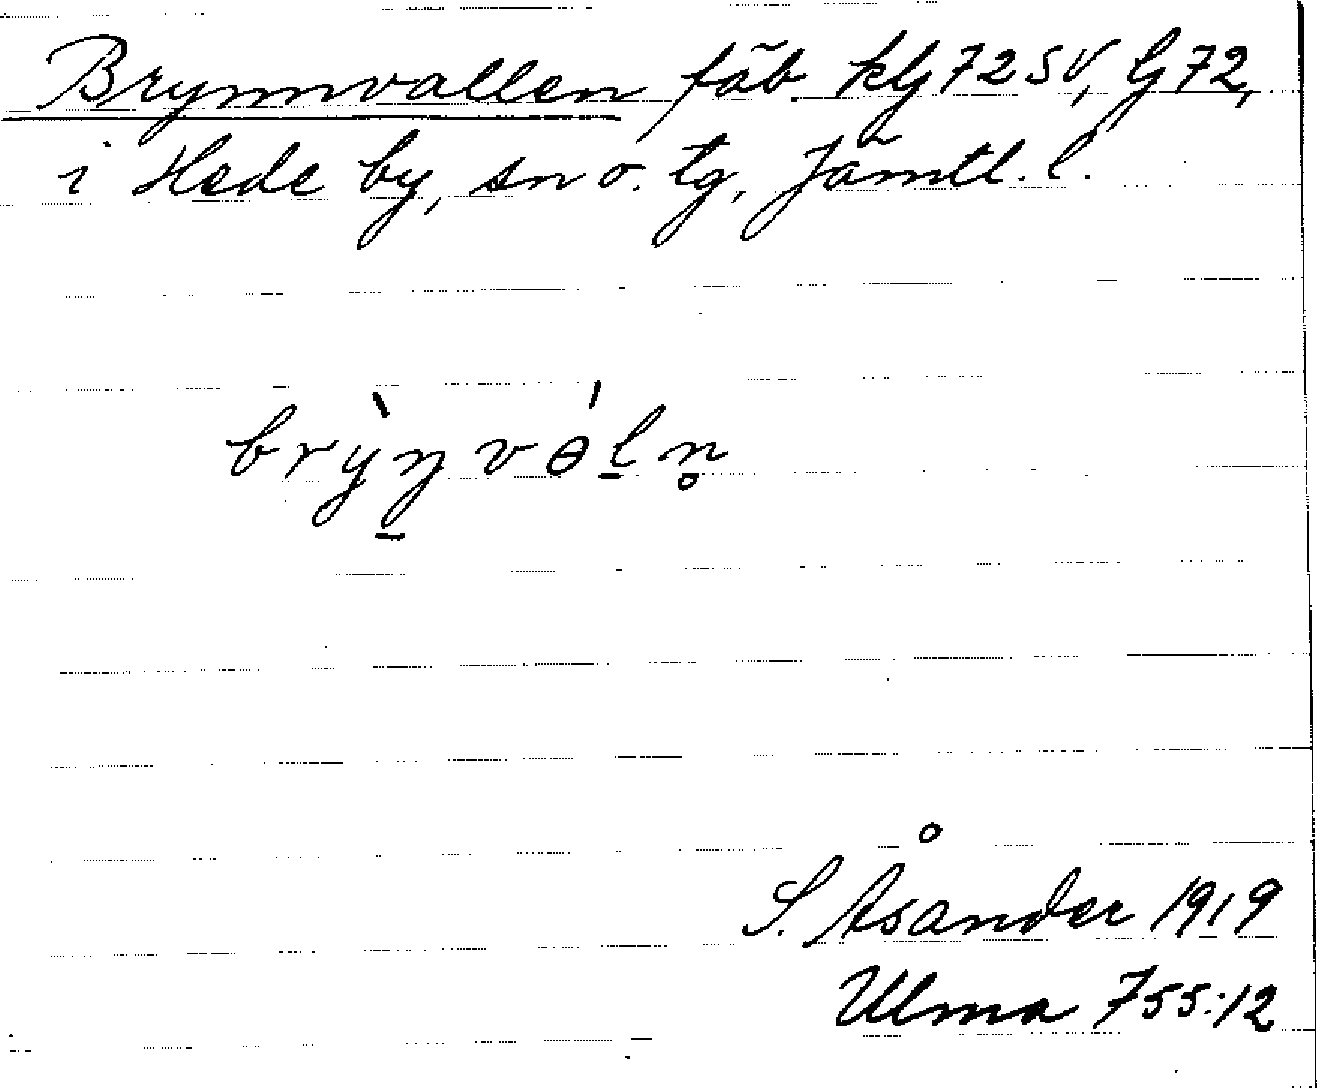 Brynnvallen fäb. klj 72 SV, Lj 72,
i Hede by, sn o. tg, Jämtl. l.
brỳn̠vɵ́l̠n̥
S. Åsander 1919
Ulma 755:12